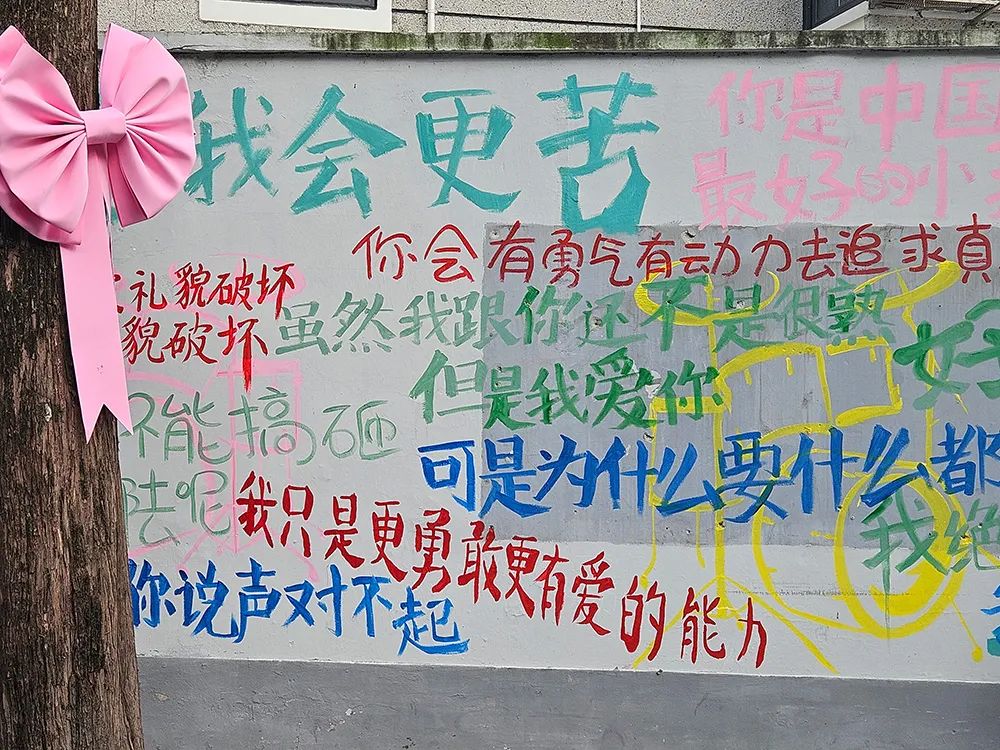 我会更苦
你是中国
最好的小
你会有勇气有动力去追求真
礼貌破坏
貌破坏
虽然我跟你还不是很熟
但是我爱你
好
不能搞砸
可是为什么要什么都
呢
我只是更勇敢更有爱的能力
我绝
你说声对不起